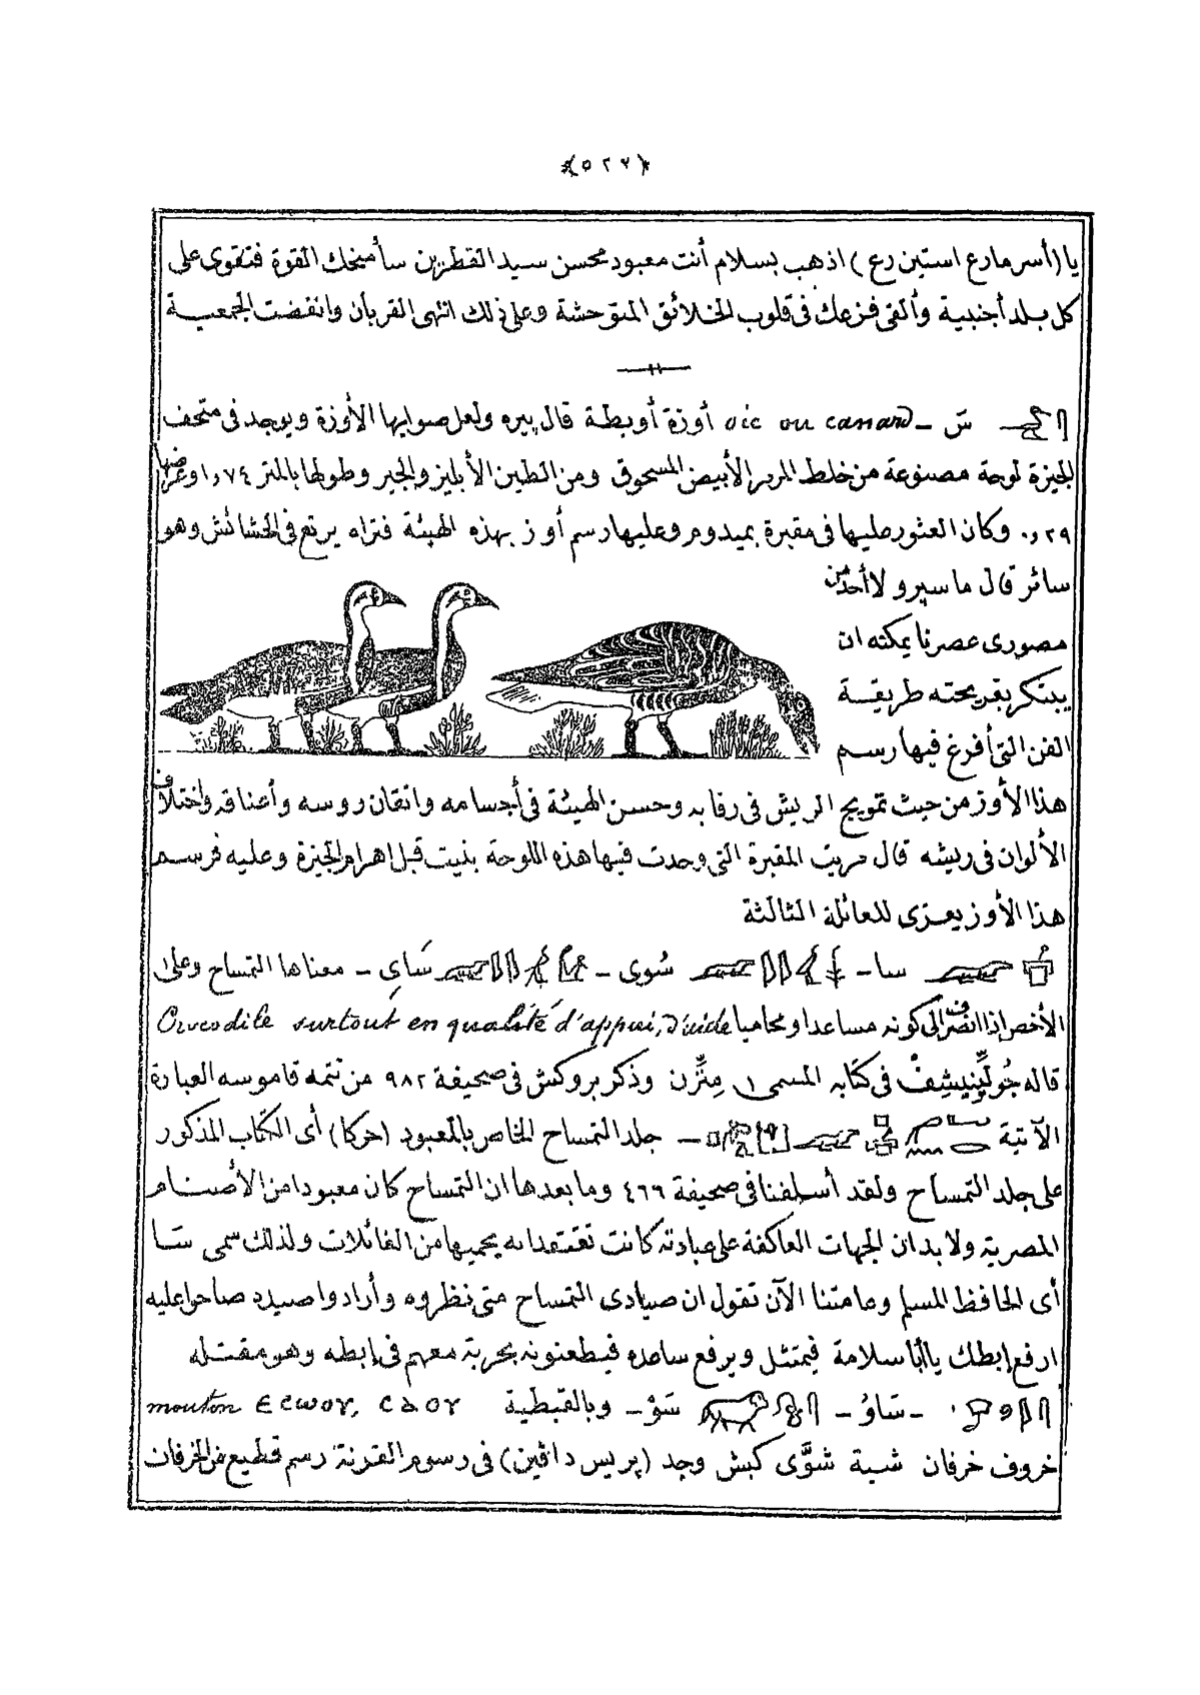 ﴿٥٢٧﴾
يا (أسرمارع استپن رع) اذهب بسلام أنت معبود محسن سيد القطرين سأمنحك القوة فتقوى على
كل بلد أجنبية وألقى فزعك فى قلوب الخلائق المتوحشة وعلى ذلك انتهى القربان وانفضت الجمعية
سَ - oie ou canard أوزة أوبطة قال پيره ولعل صوابها الأوزة ويوجد فى متحف
الجيزة لوحة مصنوعة من خلط المرمر الأبيض المسحوق ومن الطين الأبليز والجير وطولها بالمتر ١٫٧٤ وعرضها
٠٫٢٩ وكان العثور عليها فى مقبرة بميدوم وعليها رسم أوز بهذه الهيئة فتراه يرتع فى الحشائش وهو
سائر قال ماسپرو لا أحد من
مصورى عصرنا يمكنه ان
يبتكر بقريحته طريقة
الفن التى أفرغ فيها رسم
هذا الأوز من حيث تمويج الريش فى رقابه وحسن الهيئة فى أجسامه واتقان روسه وأعناقه واختلاف
الألوان فى ريشه قال مريت المقبرة التى وجدت فيها هذه اللوحة بنيت قبل اهرام الجيزة وعليه فرسم
هذا الأوز يعزى للعائلة الثالثة
سا - سُوى - سَاىِ - معناها التمساح وعلى
الأخص إذا انصرف الى كونه مساعدا ومحاميا Crocodile surtout en qualité d'appui, d'aide
قاله جُولِنِيشِفْ فى كتابه المسمى مِتِّرْن وذكر بروكش فى صحيفة ٩٨٢ من تتمة قاموسه العبارة
الآتية - جلد التمساح الخاص بالمعبود (خركا) أى الكتاب المذكور
على جلد التمساح ولقد أسلفنا فى صحيفة ٤٦٦ وما بعدها ان التمساح كان معبودا من الأصنام
المصرية ولابد ان الجهات العاكفة على عبادته كانت تعتقد انه يحميها من الغائلات ولذلك سمى سَا
أى الحافظ المسلم وعامتنا الآن تقول ان صيادى التمساح متى نظروه وأرادوا صيده صاحوا عليه
ارفع إبطك يا أبا سلامة فيمتثل ويرفع ساعده فيطعنونه بحربة معهم فى إبطه وهو مقتله
- سَاوُ - سَوْ - وبالقبطية ⲉⲥⲱⲟⲩ, ⲥⲁⲟⲩ mouton
خروف خرفان شية شَوَّى كبش وجد (پريس داڤين) فى رسوم القرنة رسم قطيع من الخرفان